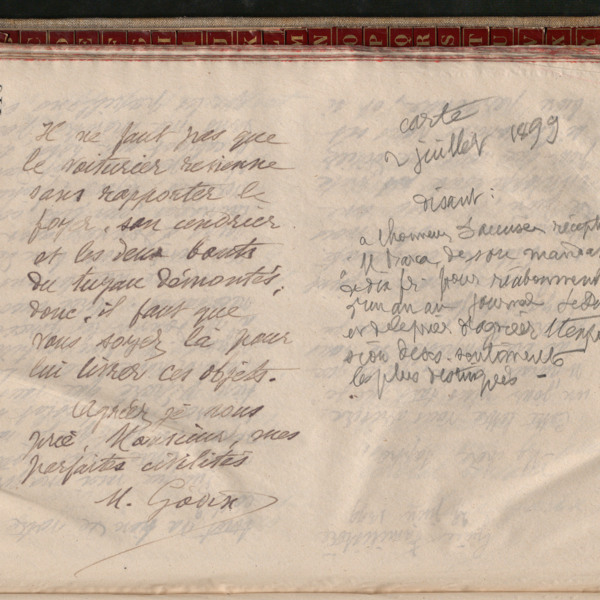 E D E F G H I J K L M N O P Q R S T U V X Y
Il ne faut pas que
le voiturier revienne
sans rapporter le
foyer, son cendrier
et les deux bouts
du tuyau démontés,
donc, il faut que
vous soyez là pour
lui livrer ces objets.
Agréer je vous
prie, Monsieur, mes
parfaites civilités
M. Godin
carte
2 juillet 1899
disant :
a l'honneur d'accuser récept
M de son mandat
de dix fr. pour réabonnement
d'un an au journal Le De
et de le prier d'agréer l'expres
sion de ses sentiments
les plus distingués -